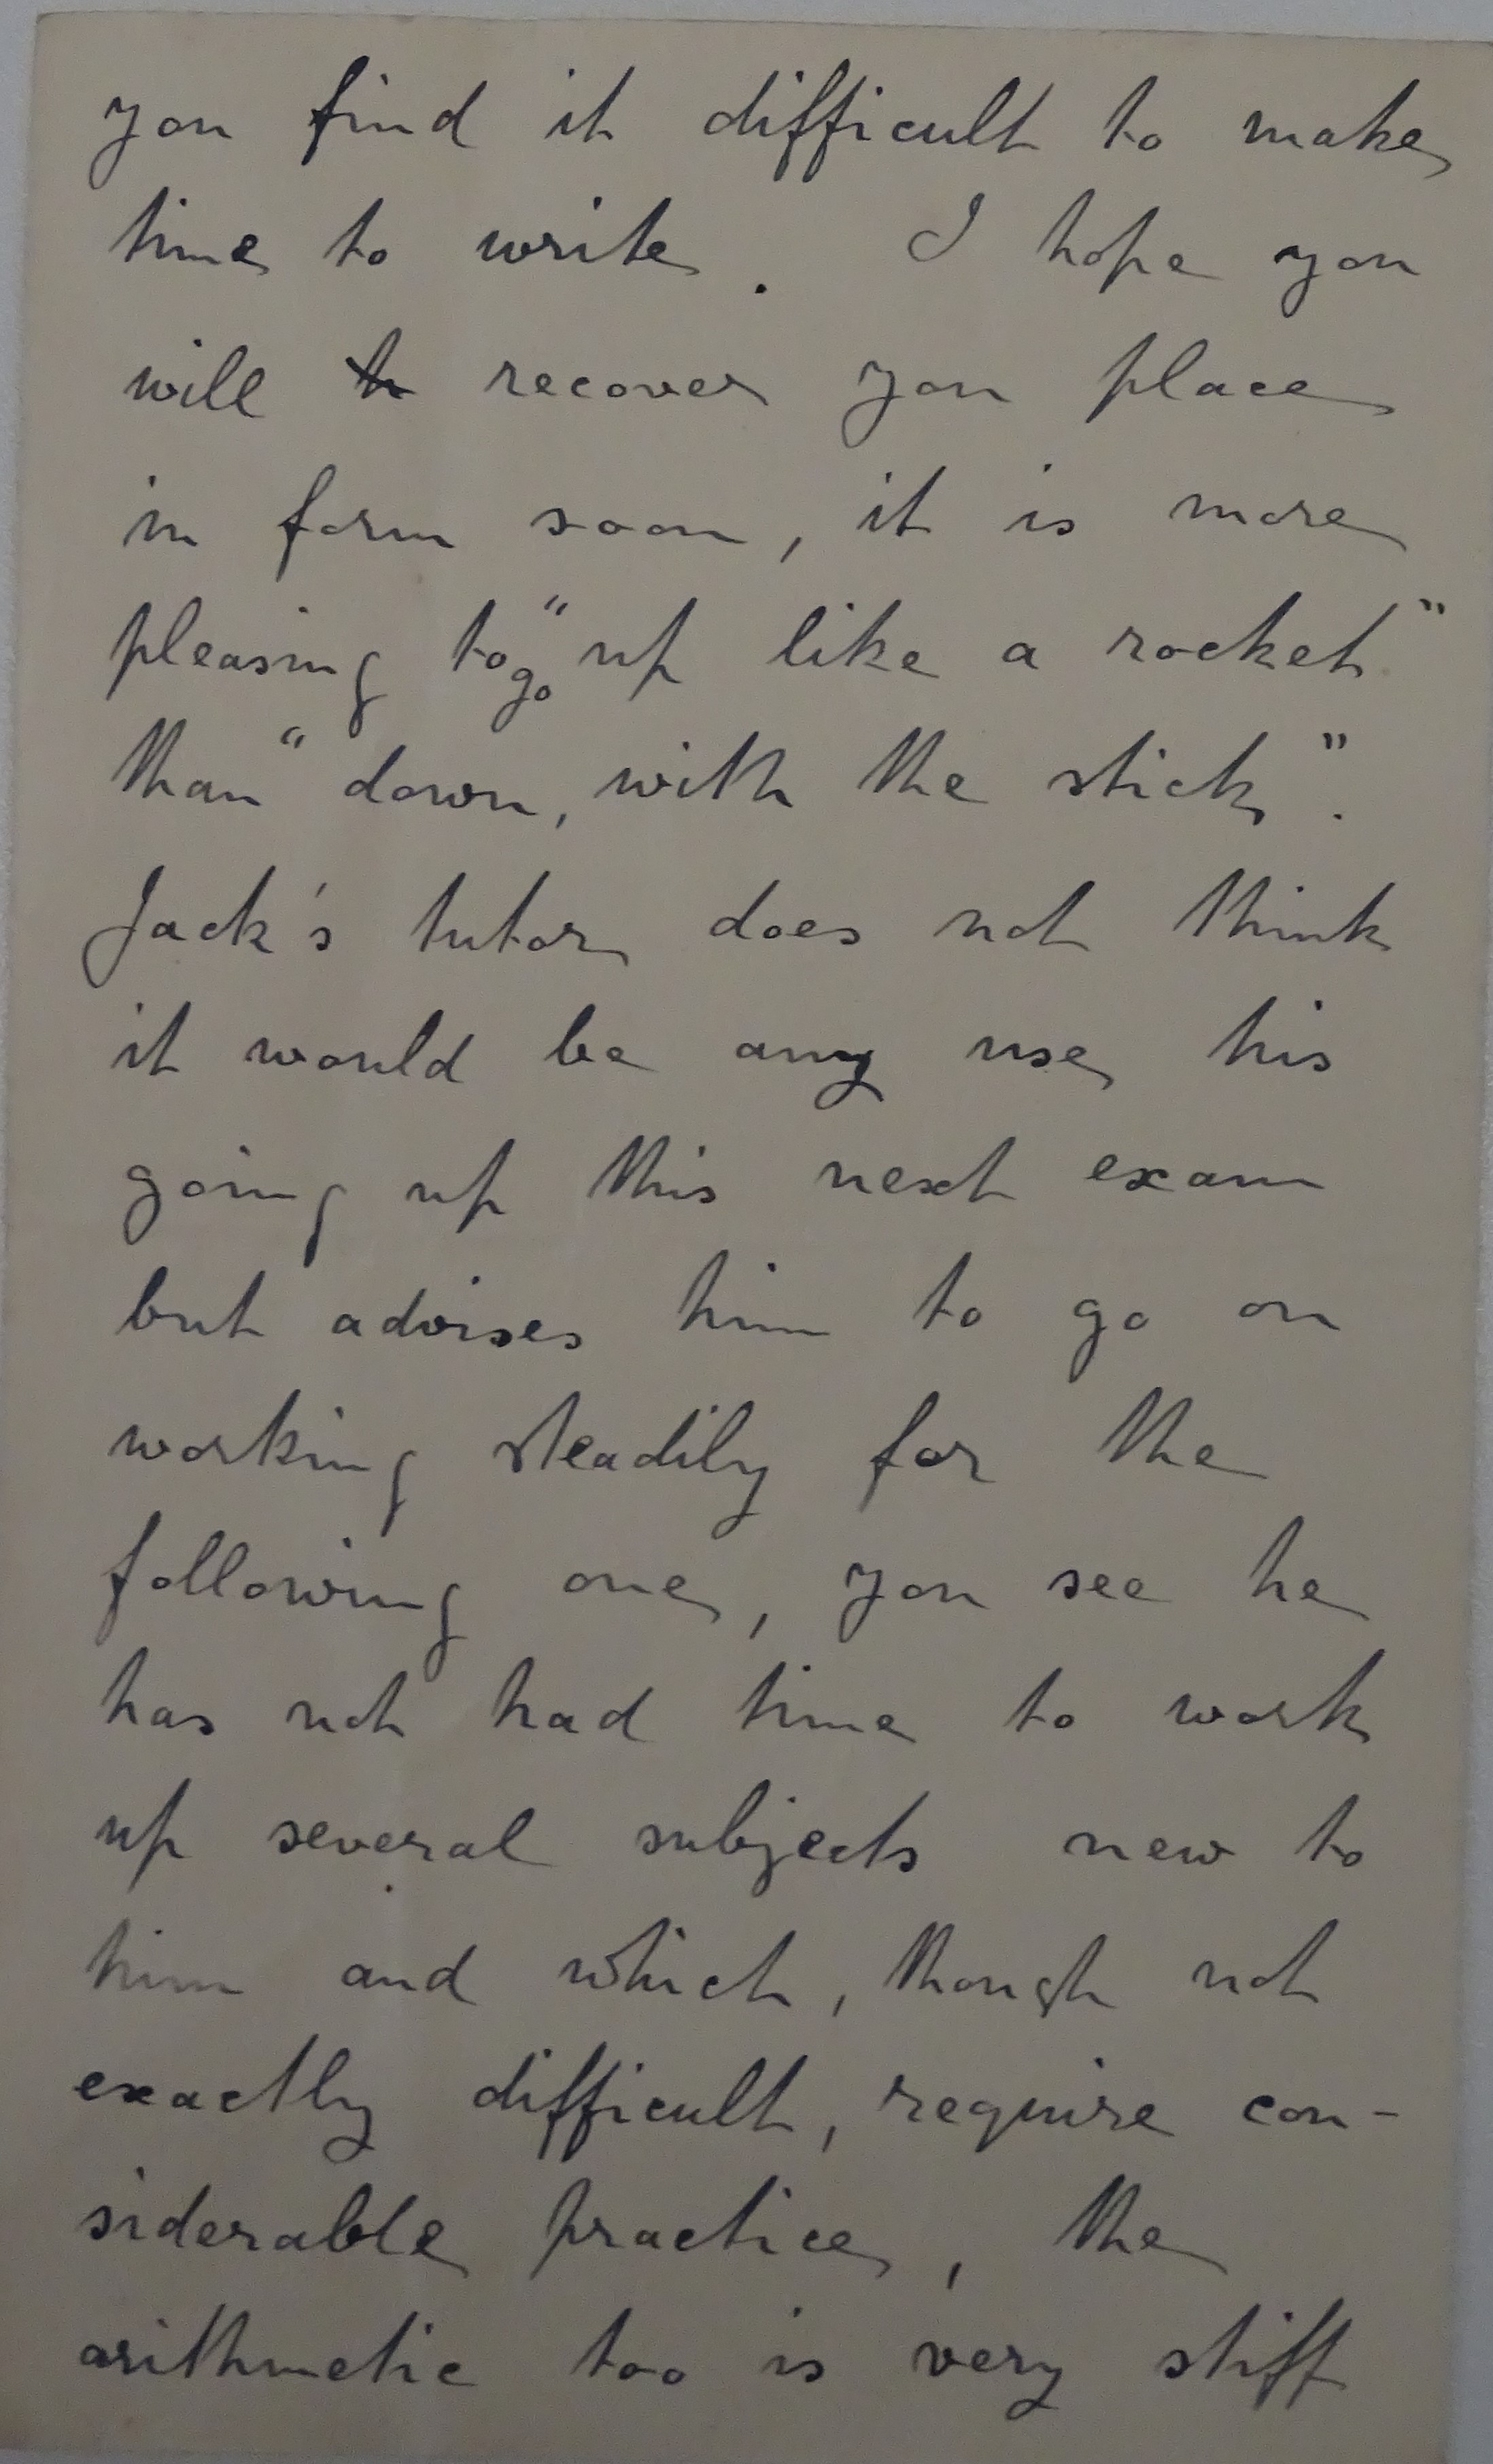 you find it difficult to make
time to write. I hope you
will to recover you place
in form soon, it is more
pleasing to go "up like a rocket"
than "down, with the stick".
Jack's tutor does not think
it would be any use his
going up this next exam
but advises him to go on
working steadily for the
following one, you see he
has not had time to work
up several subjects new to
him and which, though not
exactly difficult, require con-
siderable practice, the
arithmetic too is very stiff